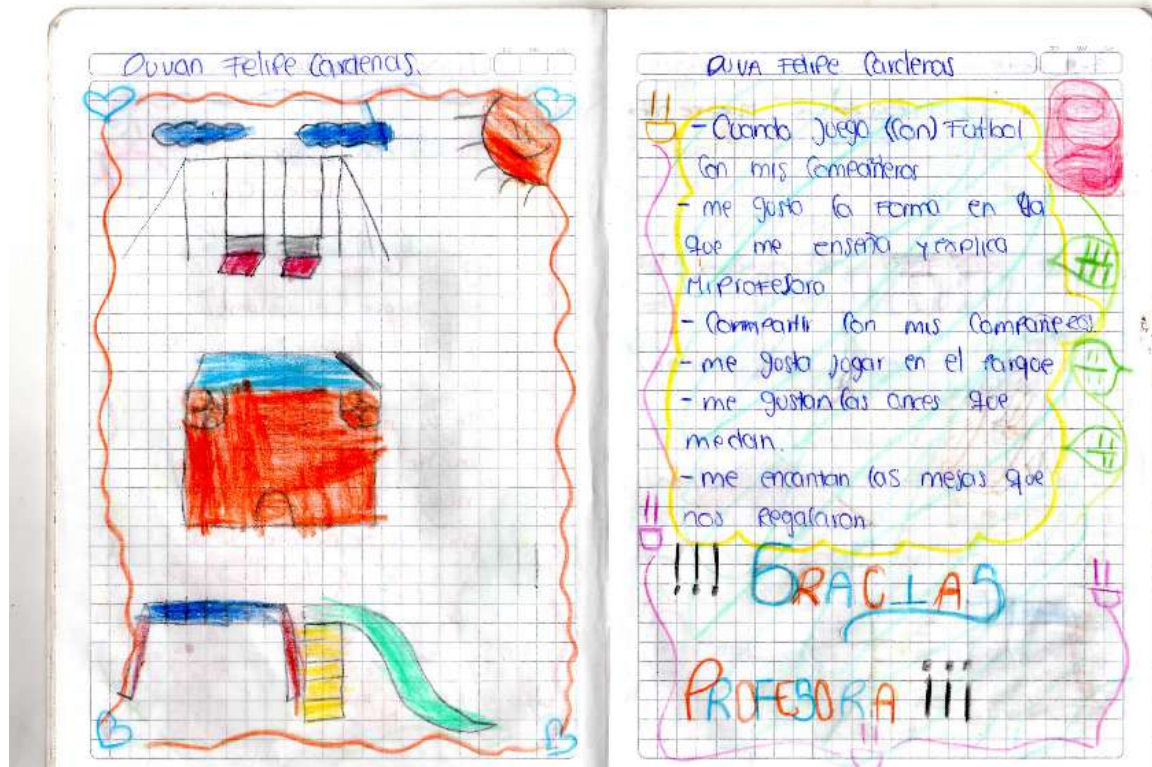 Duvan Felipe Cardenas.
DUVA Felipe Cardenas
- Cuando juego (con) Futbol
Con mis Compañeros
- me gusta la Forma en la
que me enseña y explica
Mi Profesora
- Compartir Con mis Compañeros.
- me gusta jugar en el Parque
- me gustan las onces que
me dan.
- me encantan las mesas que
nos Regalaron
!!! GRACIAS
PROFESORA ¡¡¡